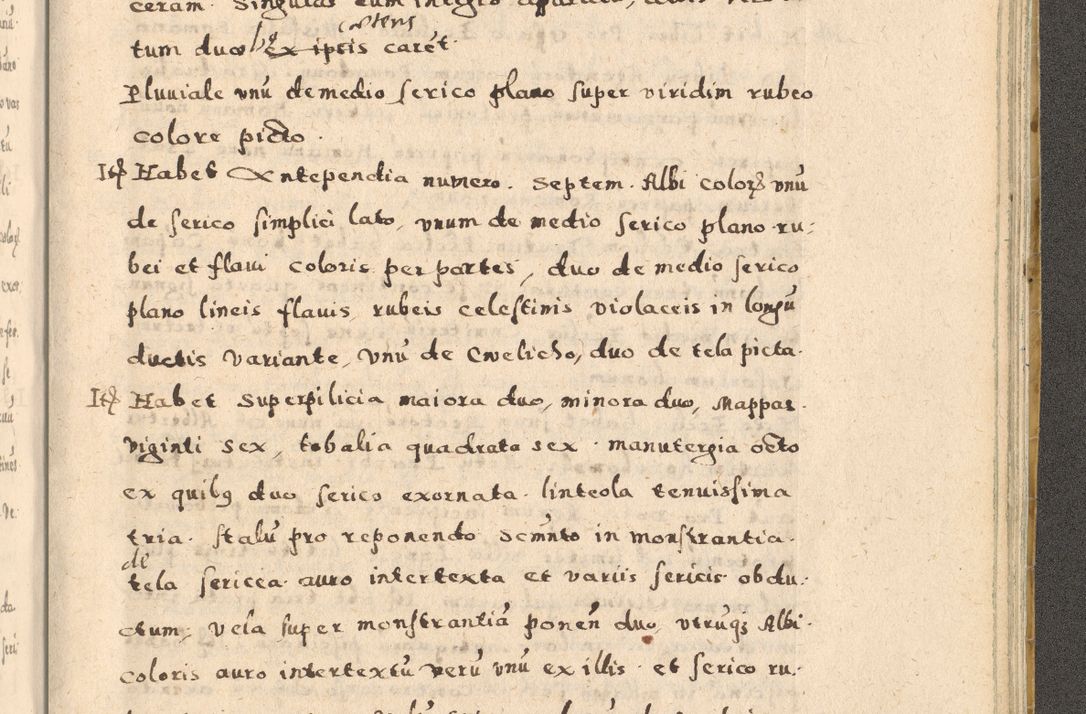 ceram. Singulas cum integro apparatu,
cōtens
tum duo ex iptis caret.
Pluuiale vnū de medio serico plano super viridim rubeo
colore picto.
Itē Habet Antependia numero. Septem. Albi coloris vnū
de serico simplici lato, vnum de medio serico plano ru:
bei et flaui coloris per partes, duo de medio serico
plano lineis flauis, rubeis celestinis violaceis in longū
ductis variante, vnū de Cwelicho, duo de tela picta.
Itē Habet Superpilicia maiora duo, minora duo, Mappas.
viginti sex, tobalia quadrata sex. manutergia octo
ex quibꝯ duo serico exornata. linteola tenuissima
tria. stalū pro reponendo Scm̄nto in monstrantia.
de
tela sericea. auro intertexta et variis sericis obdu.
ctum, vela super monstrantiā ponen̄ duo, vtrūqꝫ Albi.
coloris auro intertextū verū vnū ex illis. et serico ru: